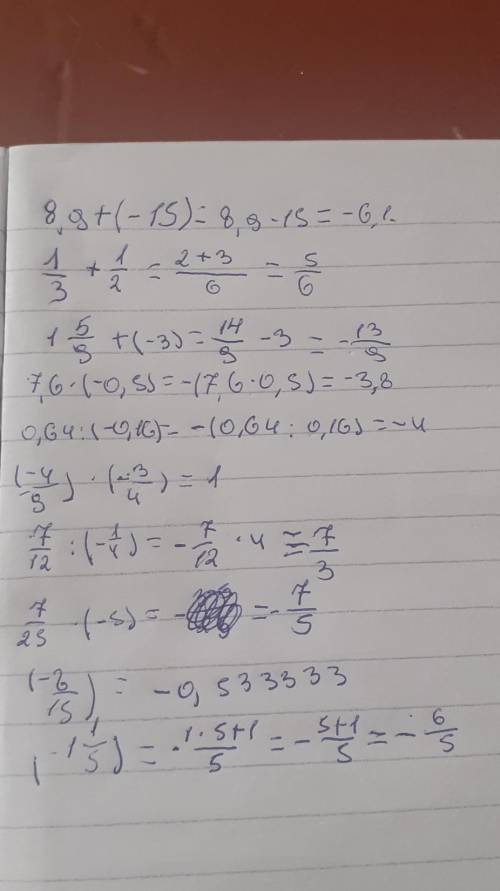 8,9+(-15)=8,9-15=-6,1.
1/3 + 1/2 = (2+3)/6 = 5/6
1 5/9 +(-3)= 14/9 -3 = -13/9
7,6·(-0,5)=-(7,6·0,5)=-3,8
0,64:(-0,16)=-(0,64:0,16)=-4
(-4/9)·(-3/4)=1
7/12:(-1/4)=-7/12·4=-7/3
7/25·(-5)=- =-7/5
= -0,533333
(-1 1/5)=-(1·5+1)/5=-(5+1)/5=-6/5